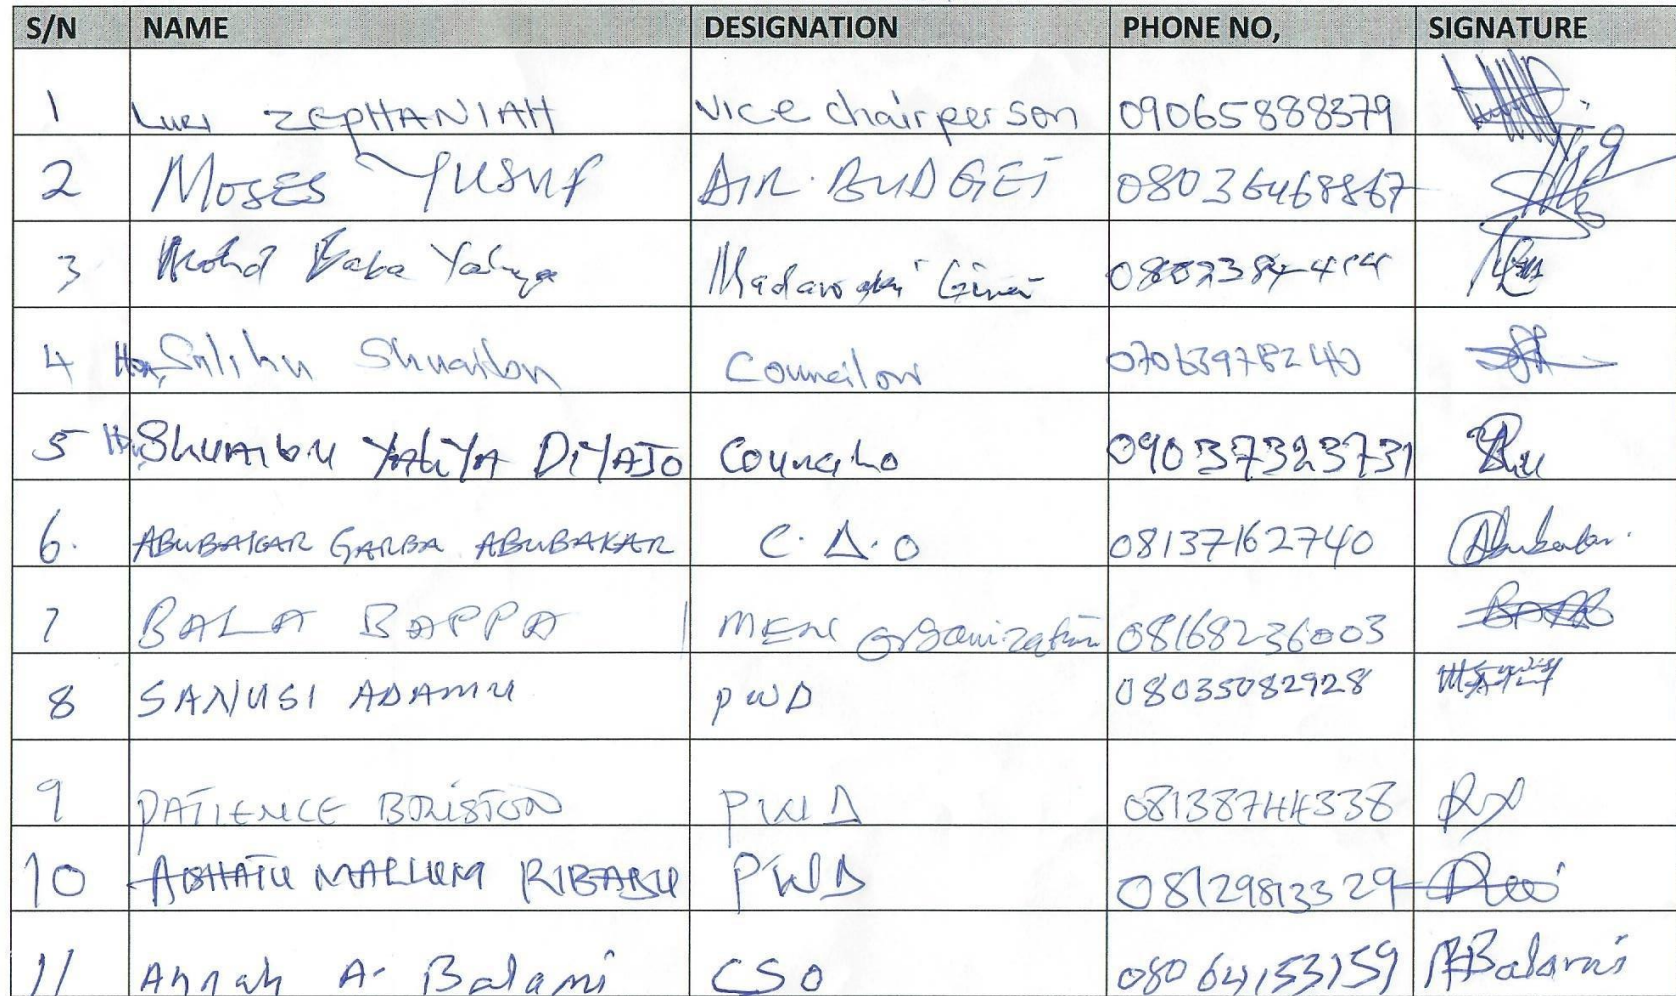 S/N NAME DESIGNATION PHONE NO, SIGNATURE
1 Luri ZEPHANIAH vice chairperson 09065888379
2 MOSES YUSUF AIR. BUDGET 08036468867
3 Mohd Baba Yahya Madawaki Girei
4 Hon, Salihu Shuaibu Councilor 07063978240
5 Hon, Shuaibu YAHYA DIYAJO Councilo 09037323731
6. ABUBAKAR GARBA ABUBAKAR C.D.O 08137162740 Abubakar.
7 BALA BAPPA MEN organization 08168236003
8 SANUSI ADAMU PWD 08035082928
9 PATIENCE BORISTON PWD 08138744338
10 MALLUM RIBADU PWD 08129813329
11 Annah A- Balami CSO 08064153159 ABalami